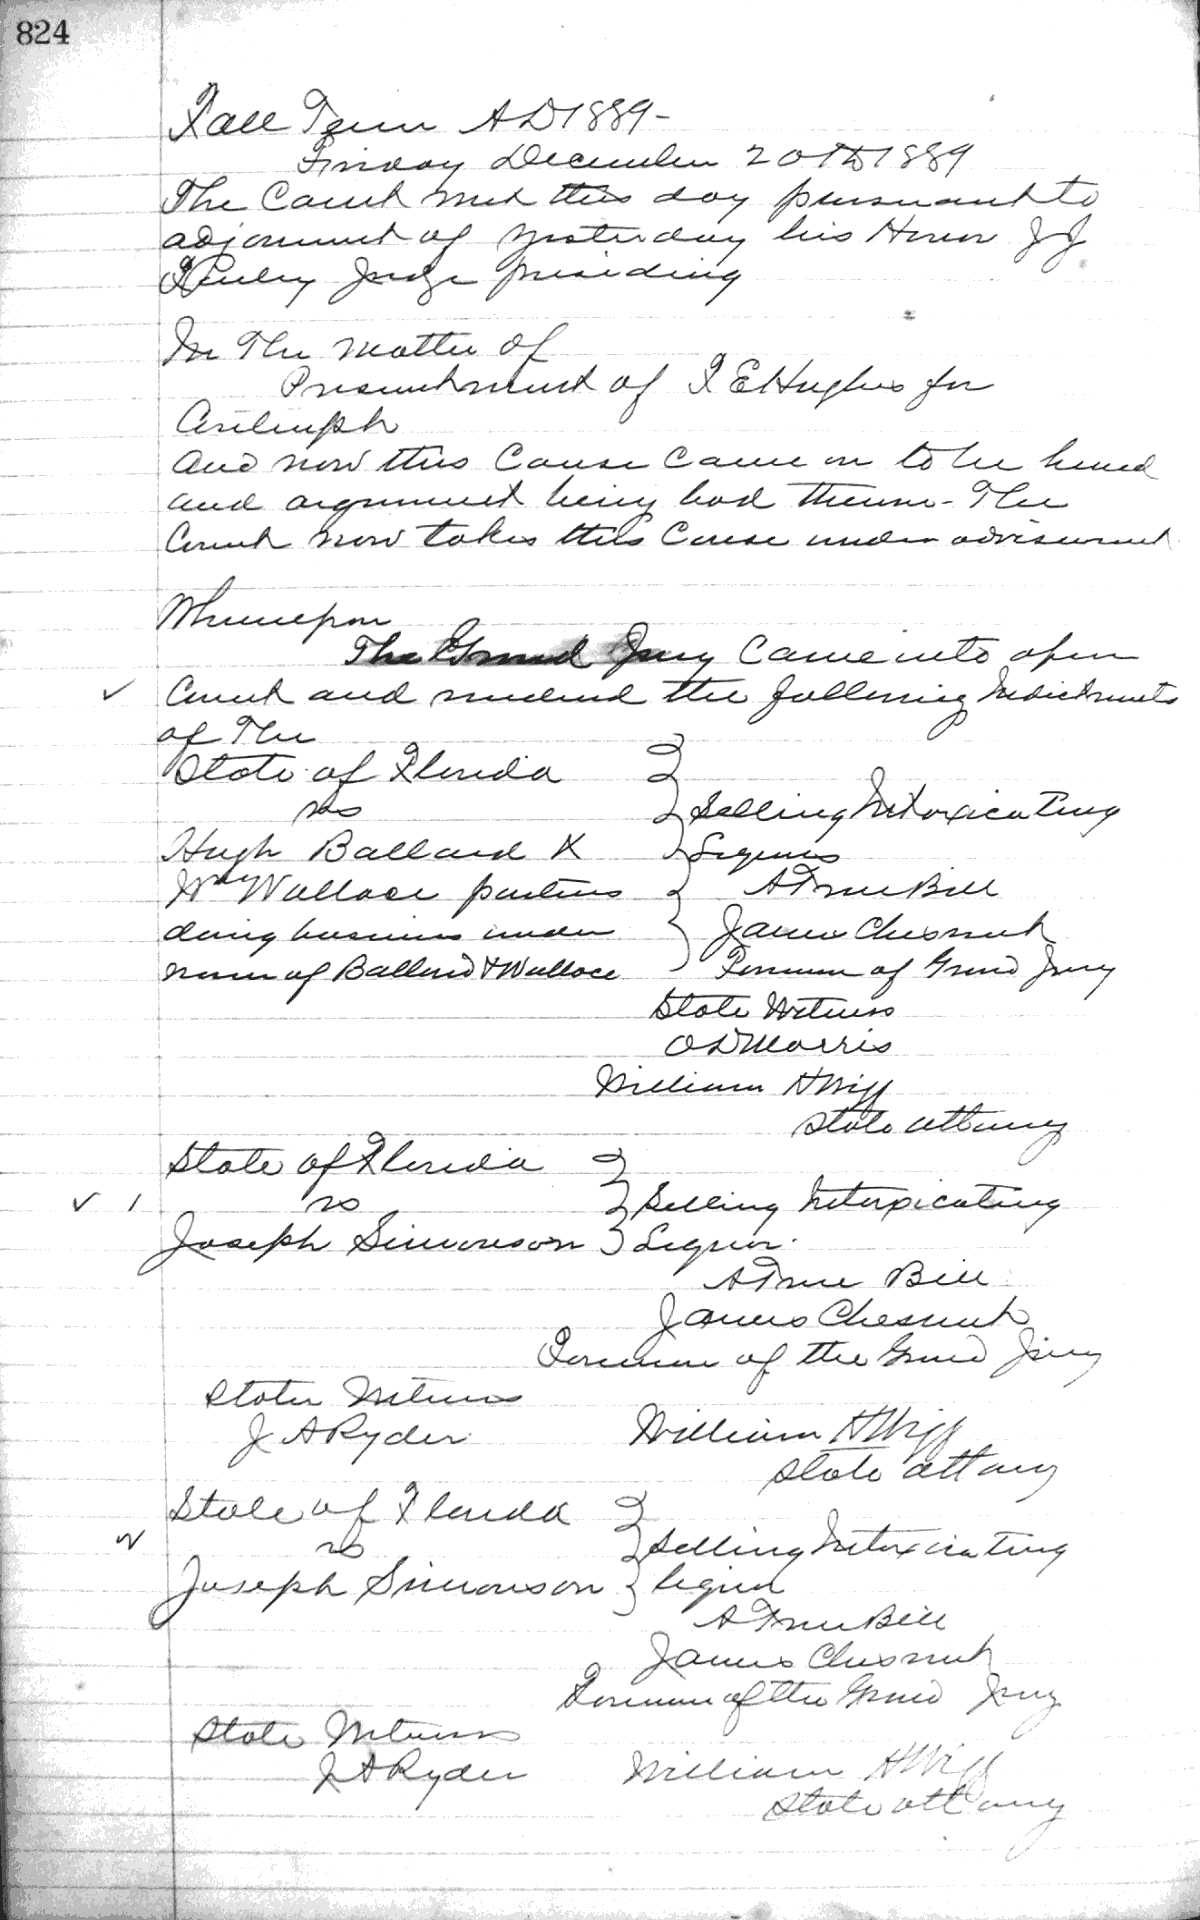 824
Fall Term A D 1889-
Friday December 20th 1889
The Court met this day pursuant to
adjornment of yesterday his Honor J J
Finley Judge presiding
In The matter of
Presentment of T E Hughes for
And now this Cause Came on to be heard
and argument being had thereon - The
Court now takes this Cause under advisement
Whereupon
The Grand Jury Came into open
Court and rendered the following Indictments
of The
State of Florida
vs
Selling Intoxicating
Hugh Ballard &
Liquors
Wm Wallace partners
A True Bill
doing business under
James Chesnut
name of Ballard & Wallace
Foreman of Grand Jury
State Witness
O D Morris
William H Wigg
State attorney
State of Florida
vs
Selling Intoxicating
Joseph Simonson
Liquor.
A True Bill
James Chesnut
Foreman of the Grand Jury
State Witness
J A Ryder
William H Wigg
State attorney
State of Florida
vs
Selling Intoxicating
Joseph Simonson
liquor
A True Bill
James Chesnut
Foreman of the Grand Jury
State Witness
J A Ryder
William H Wigg
State attorney